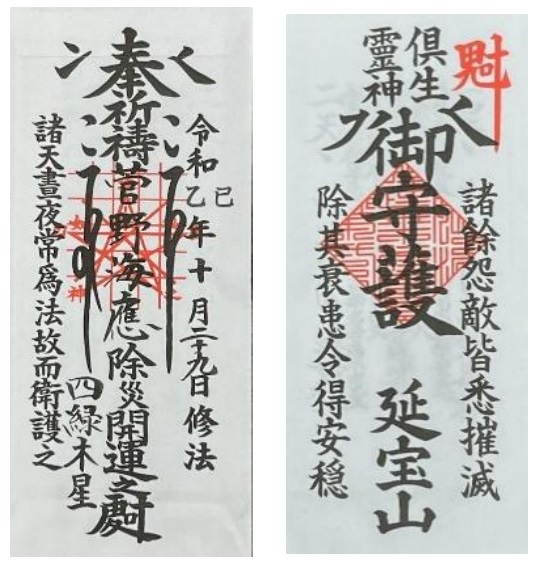 令和乙巳年十月二十九日修法
奉祈禱菅野海應除災開運之
四緑木星
諸天晝夜常爲法故而衛護之
諸餘怨敵皆悉摧滅
倶生
靈神
御守護 延宝山
除其衰患令得安穏